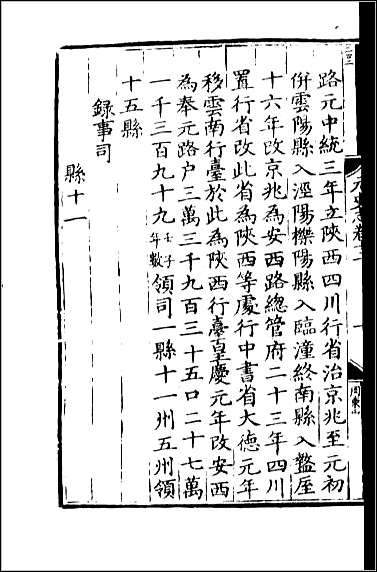 路元中統三年立陝西四川行省治京兆至元初
併雲陽縣入涇陽櫟陽縣入臨潼終南縣入盩厔
十六年改京兆為安西路總管府二十三年四川
置行省改此省為陝西等處行中書省大德元年
移雲南行臺於此為陝西行臺皇慶元年改安西
為奉元路户三萬三千九百三十五口二十七萬
一千三百九十九壬子年數領司一縣十一州五州領
十五縣
録事司
縣十一